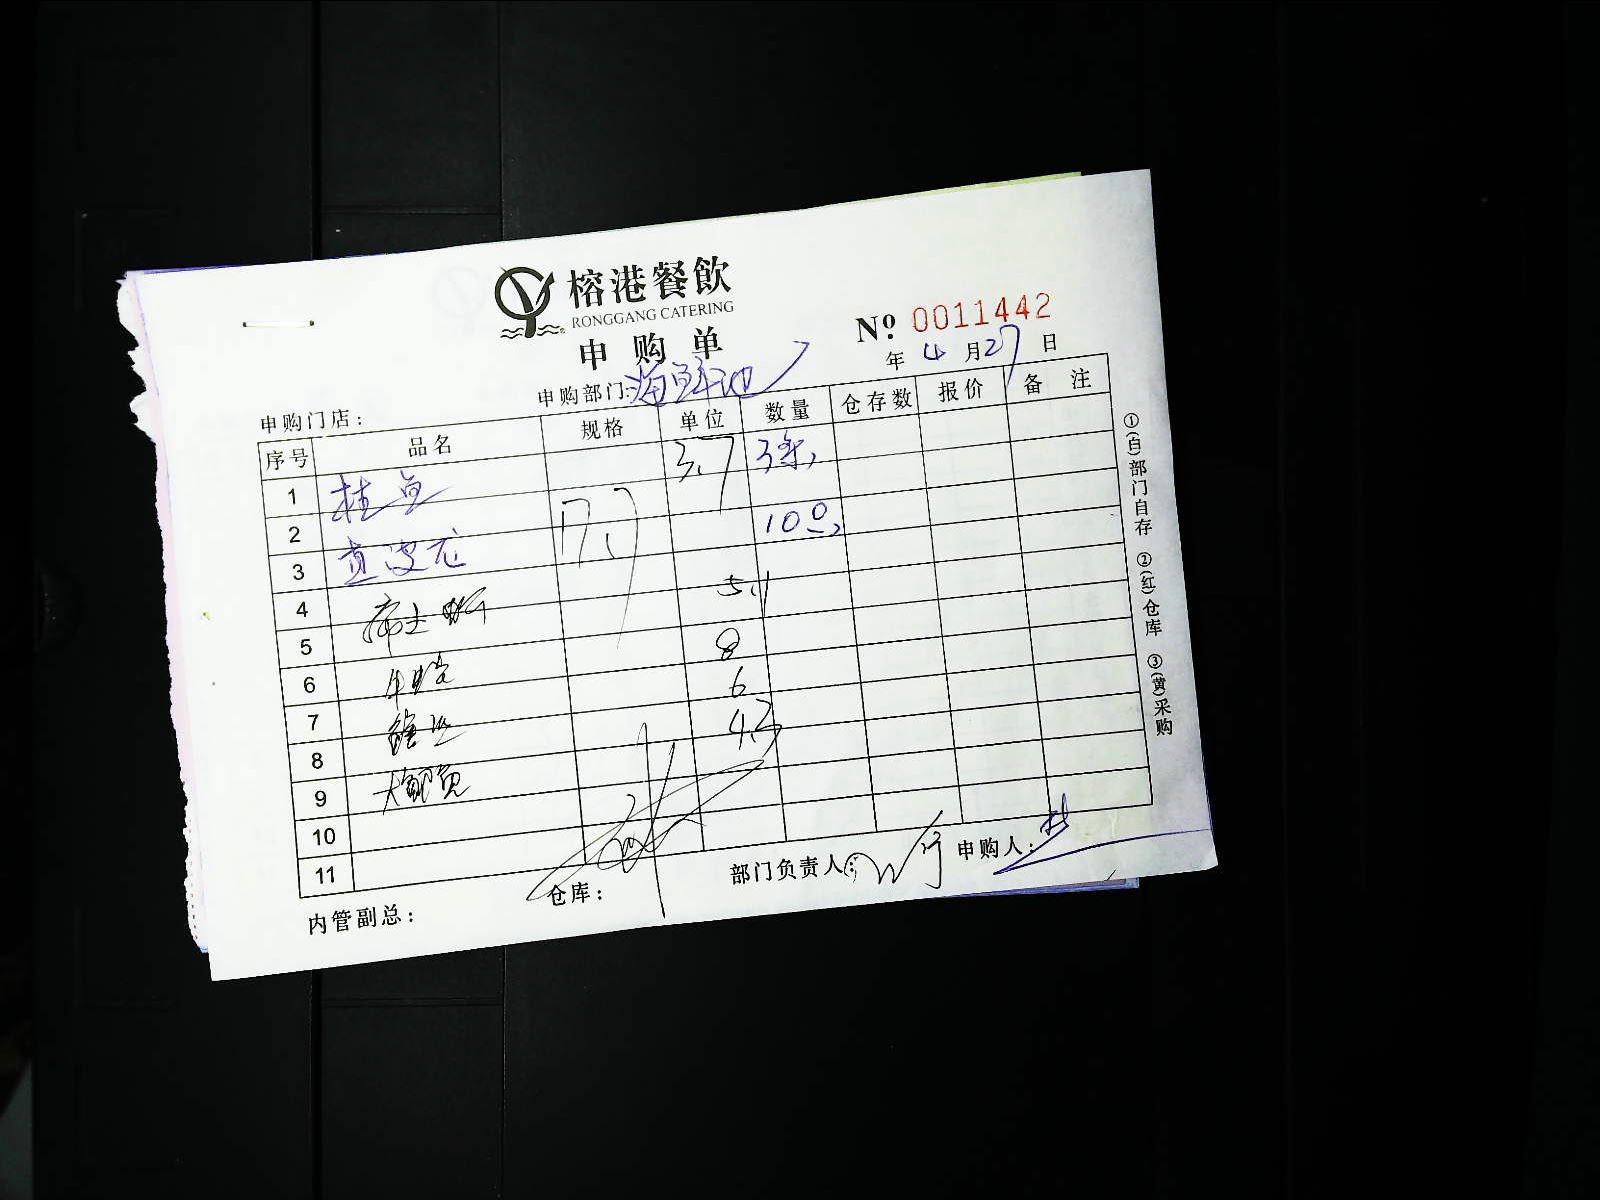 榕港餐飲
RONGGANG CATERING
申购单
№ 0011442
年 4 月 27 日
申购门店： 申购部门：海鲜池
序号 品名 规格 单位 数量 仓存数 报价 备注
1 桂鱼 3.7 3条
2
3 直波龙 17.7 10只
4
5 5.1
6 8
7 6
8 4.3
9
10
11
内管副总： 仓库： 部门负责人： 申购人：
①(白)部门自存 ②(红)仓库 ③(黄)采购